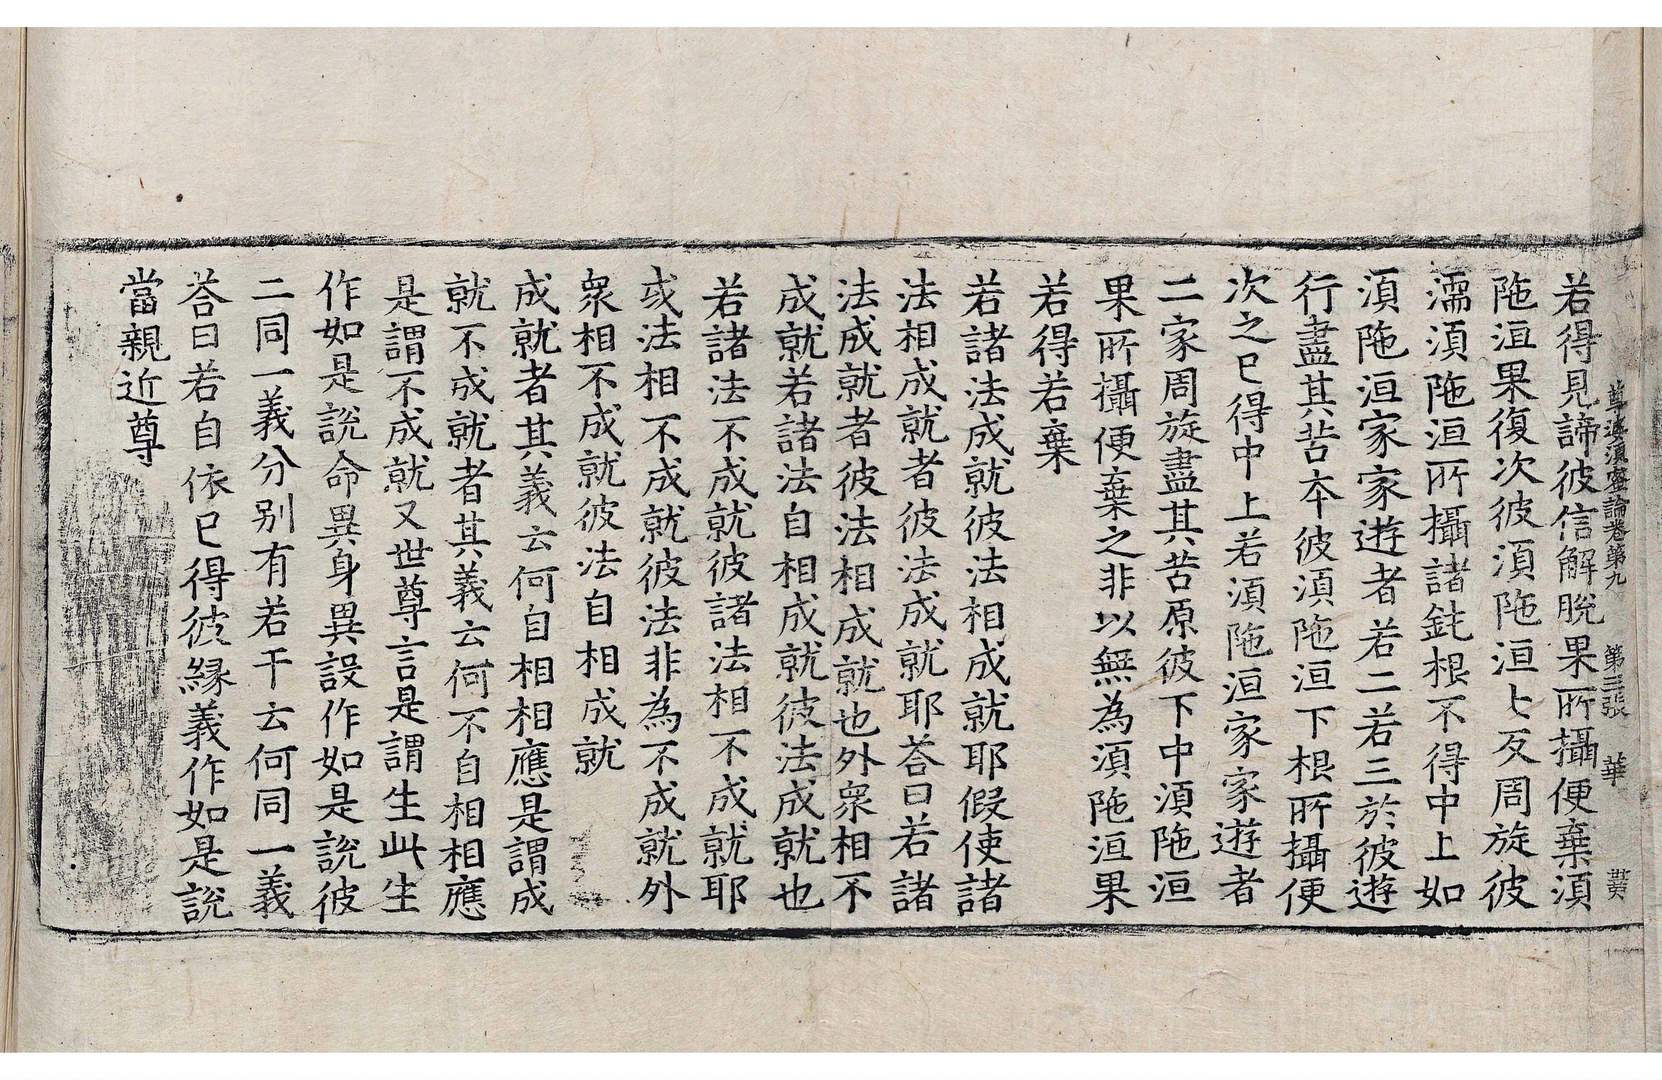 尊婆須蜜論卷第九　第三張　華
若得見諦彼信解脫果所攝便棄湏
陁洹果復次彼湏陁洹七反周旋彼
濡湏陁洹所攝諸鈍根不得中上如
湏陁洹家家遊者若二若三於彼遊
行盡其苦本彼湏陁洹下根所攝便
次之已得中上若湏陁洹家家遊者
二家周旋盡其苦原彼下中湏陁洹
果所攝便棄之非以無為湏陁洹果
若得若棄
若諸法成就彼法相成就耶假使諸
法相成就者彼法成就耶荅曰若諸
法成就者彼法相成就也外衆相不
成就若諸法自相成就彼法成就也
若諸法不成就彼諸法相不成就耶
或法相不成就彼法非為不成就外
衆相不成就彼法自相成就
成就者其義云何自相相應是謂成
就不成就者其義云何不自相相應
是謂不成就又世尊言是謂生此生
作如是說命異身異設作如是說彼
二同一義分別有若干云何同一義
荅曰若自依已得彼緣義作如是說
當親近尊